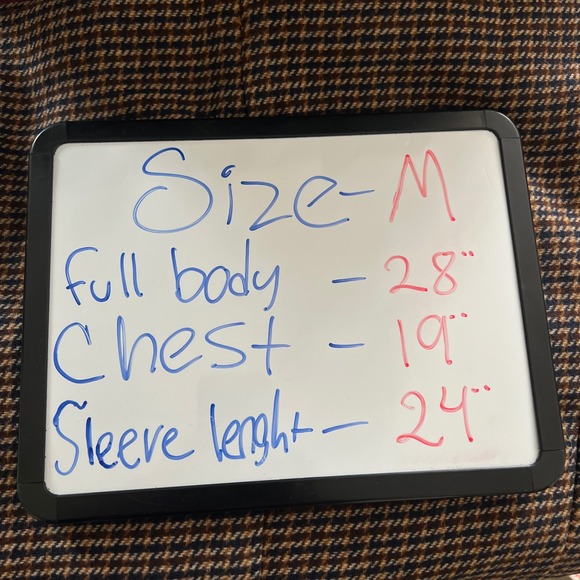 Size - M
Full body - 28"
Chest - 19"
Sleeve lenght - 24"